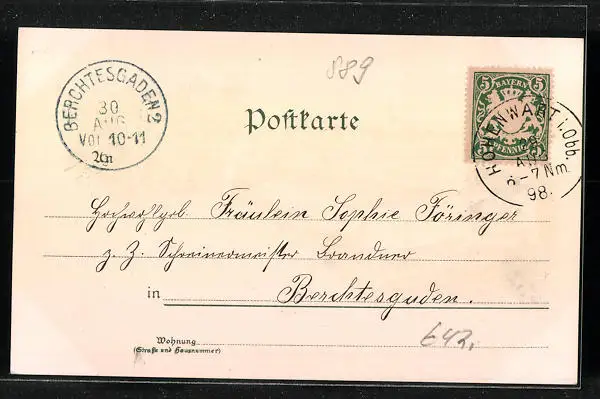 889
BERCHTESGADEN 2
30
AUG
Vor 10-11
5 BAYERN 5
PFENNIG
HOHENWART i. Obb.
6-7 Nm.
98.
Postkarte
Fräulein Sophie Föringer
z. Z. Schreinermeister Brandner
in Berchtesgaden.
Wohnung
(Straße und Hausnummer)
642.